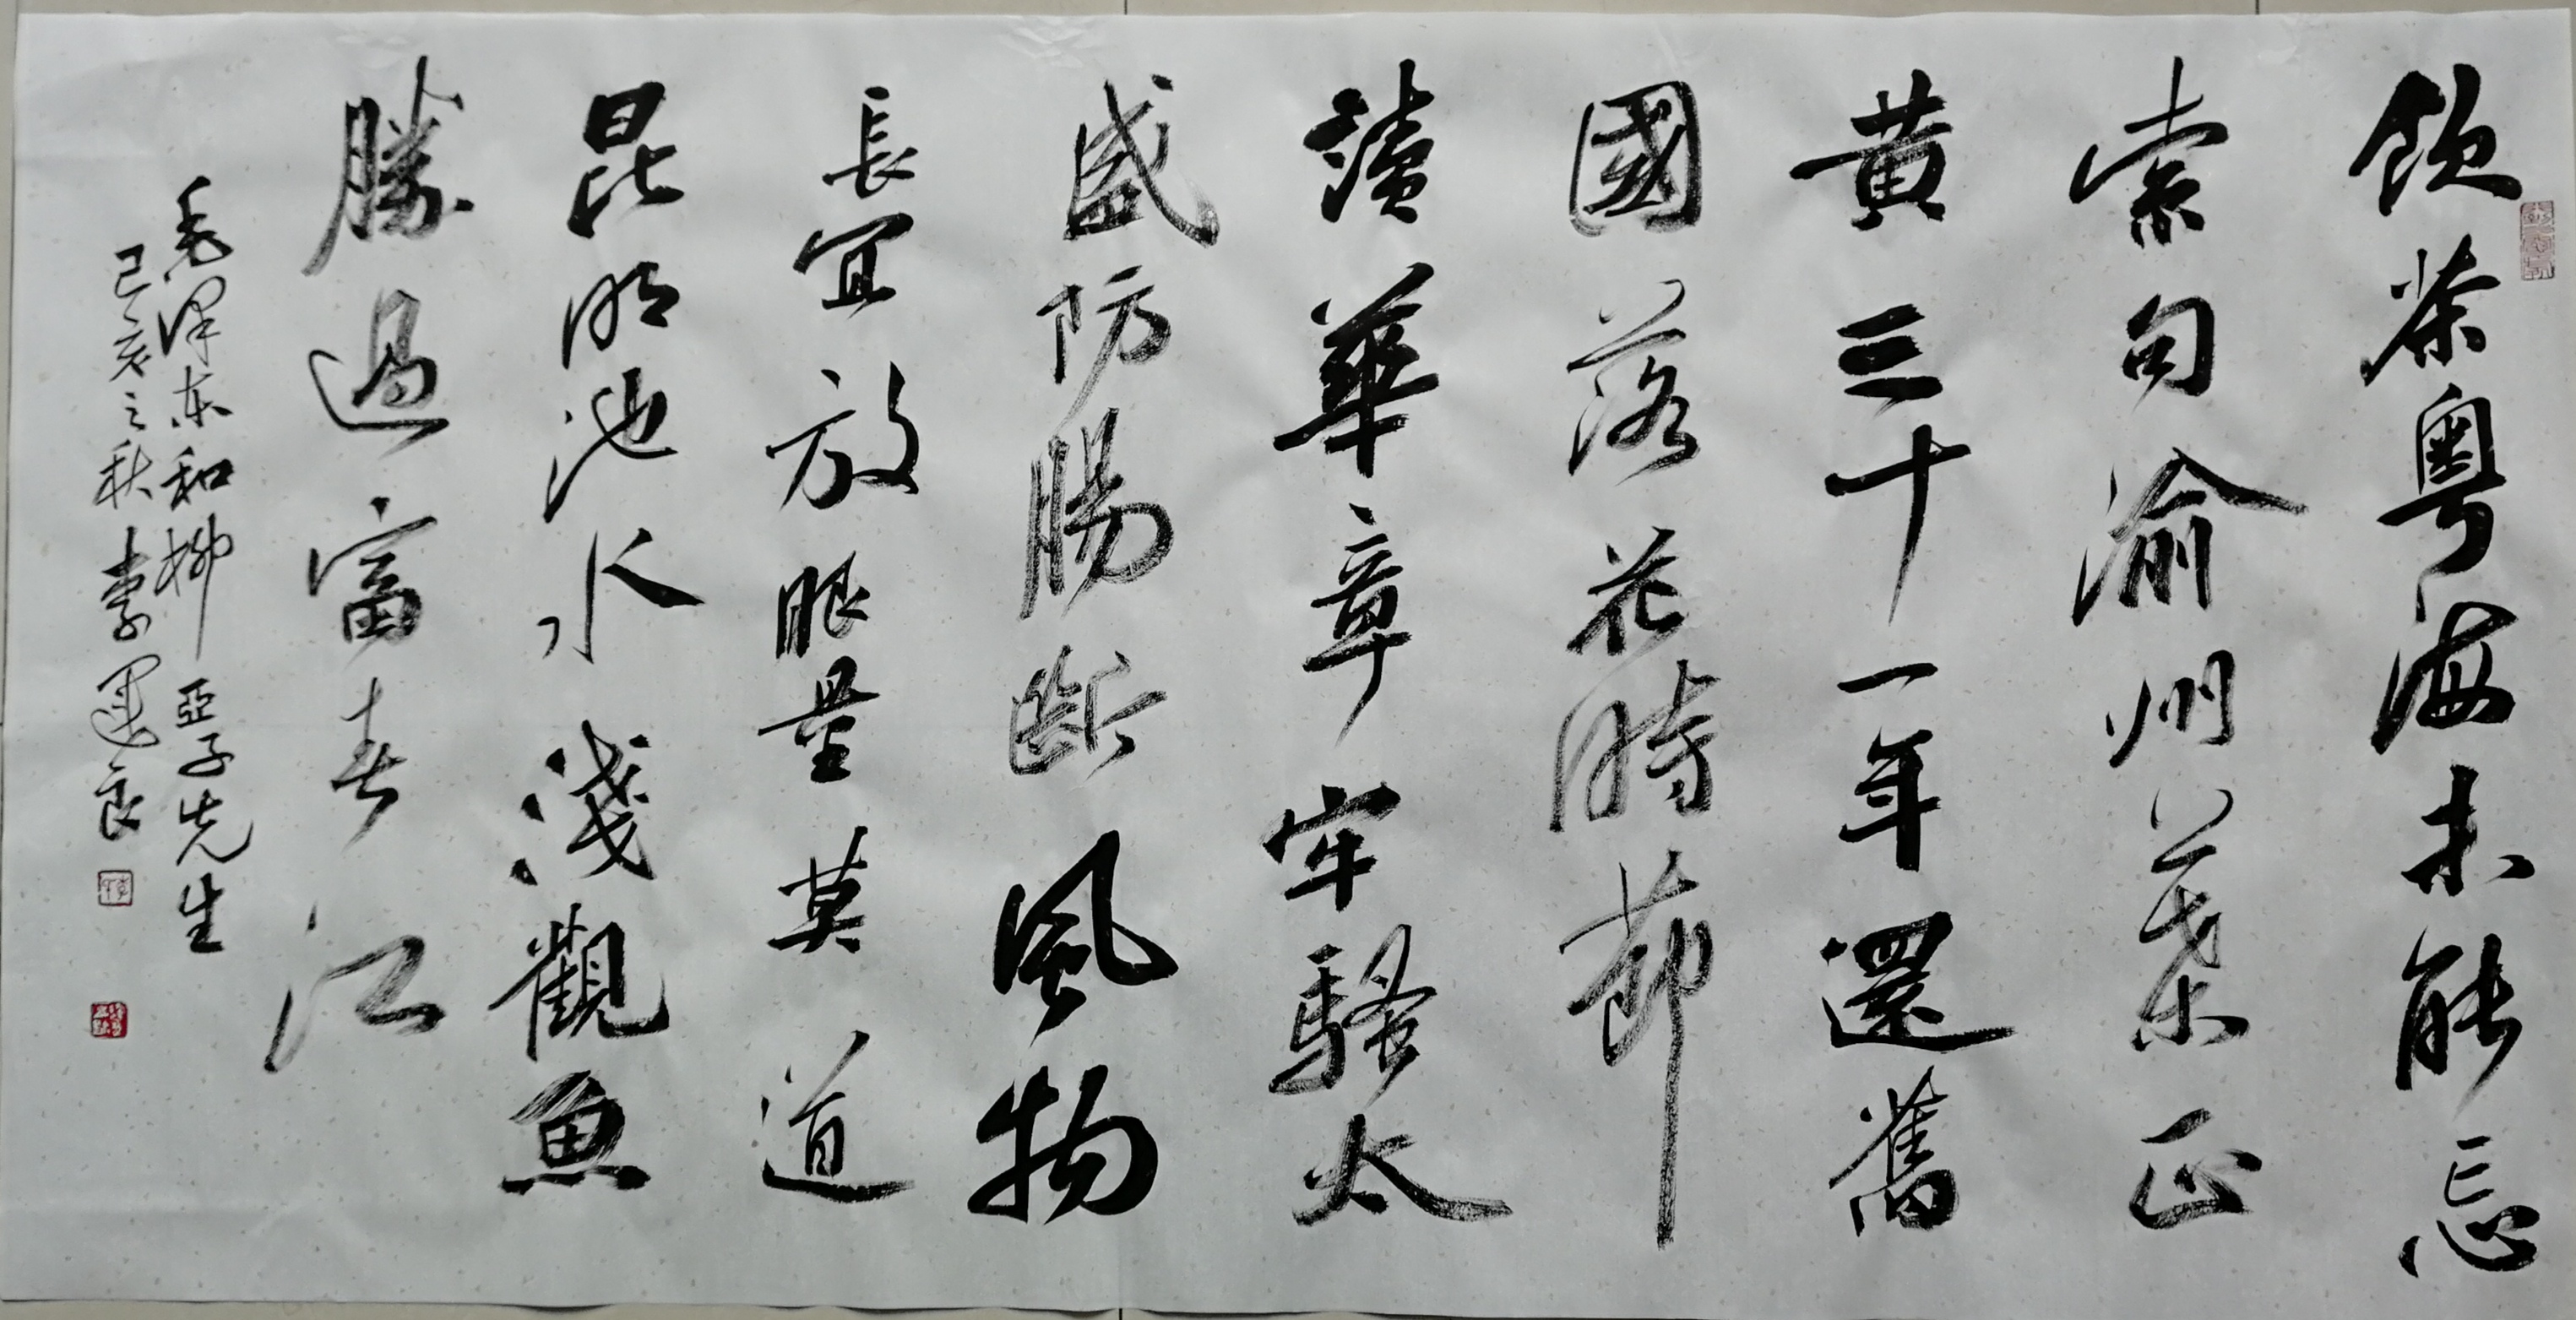 飲茶粤海未能忘
索句渝州葉正
黄三十一年還舊
國落花時節
讀華章牢騷太
盛防腸斷風物
長宜放眼量莫道
昆明池水淺觀魚
勝過富春江
毛澤东和柳亞子先生
己亥之秋李運良